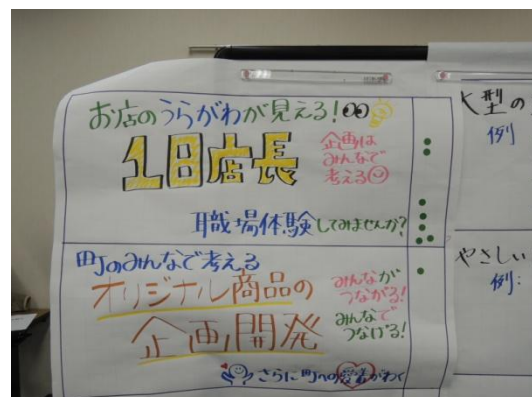 お店のうらがわが見える!
1日店長
企画は
みんなで
考える
職場体験してみませんか?
町のみんなで考える
オリジナル商品の
企画開発
みんなが
つながる!
みんなで
つなげる!
さらに町への愛着がわく
大型の
例
やさしい
例: